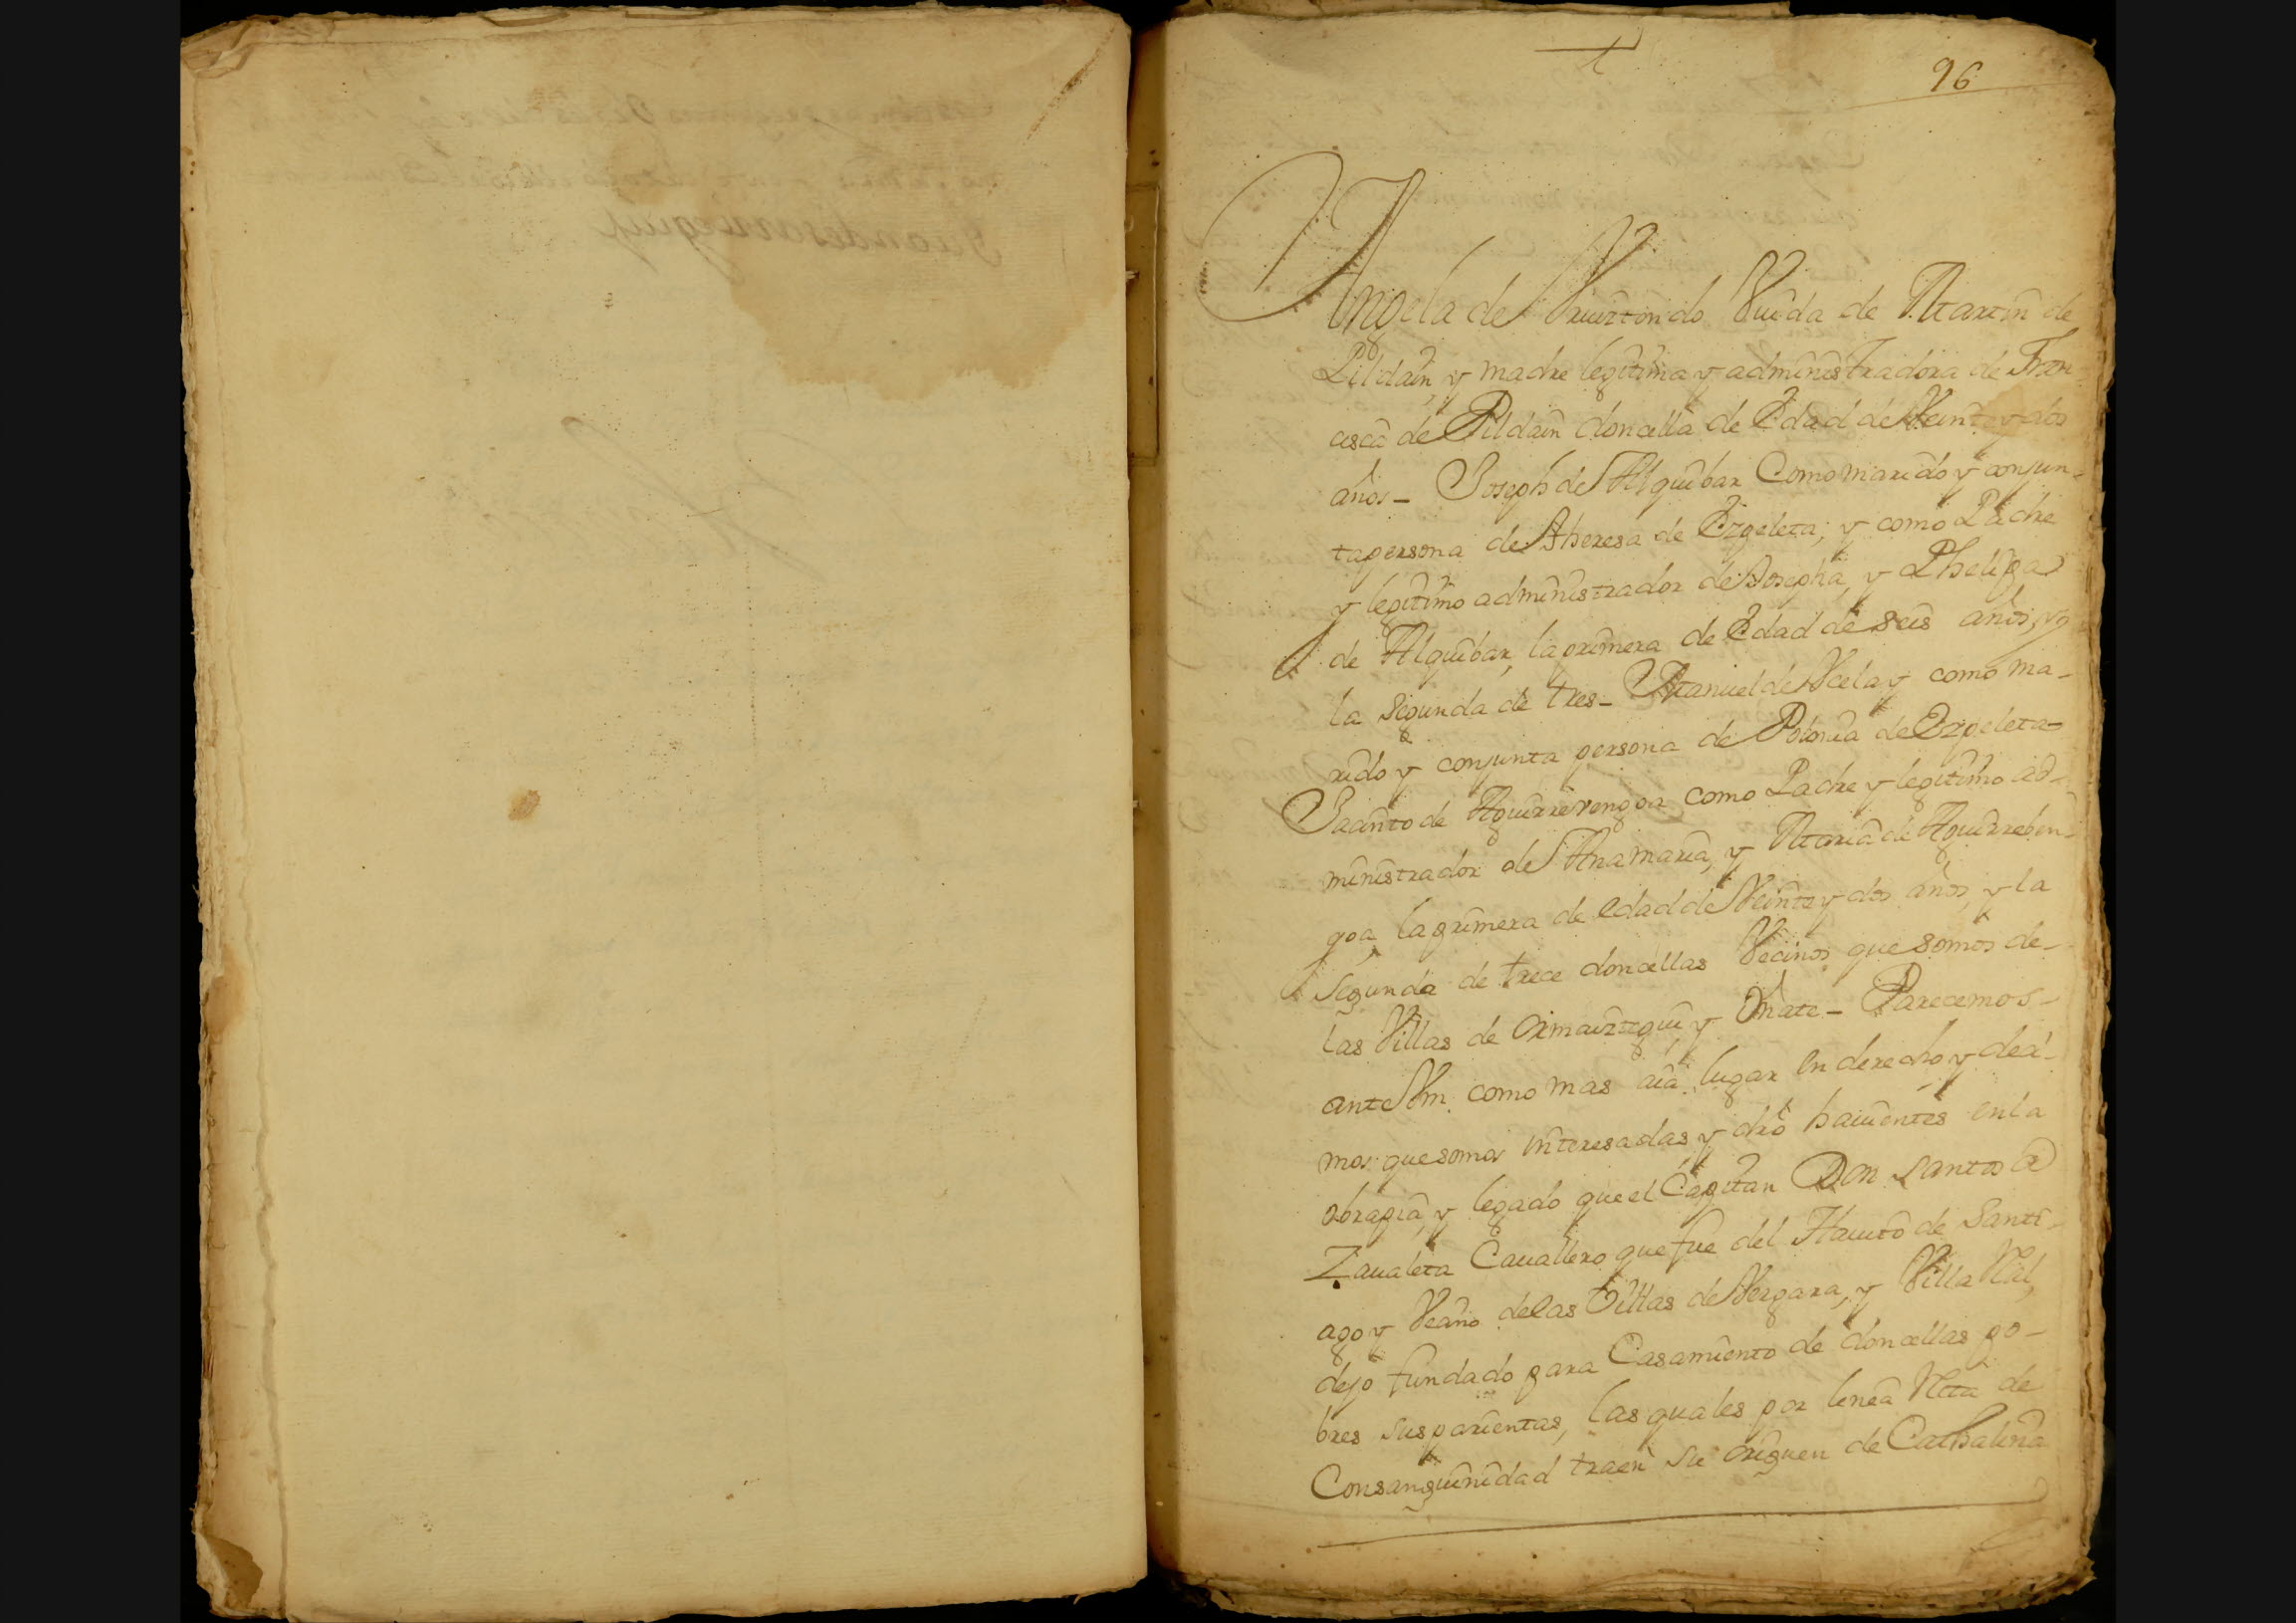 96
Angela de Vruiztondo Viuda de Martin de
Pildain, y madre legitima y administradora de Fran
cisca de Pildain doncella de Edad de Veinte y dos
años - Joseph de Alquibar Como marido y conjun-
ta persona de Theresa de Ezpeleta, y como Padre
y legitimo administrador de Josepha, y Phelipa
de Alquibar, la primera de Edad de seis años, y
la segunda de tres - Manuel de Vcelay como ma-
rido y conjunta persona de Polonia de Ezpeleta -
Jacinto de Aguirrevengoa como Padre y legitimo ad-
ministrador de Ana maria, y Maria de Aguirreben-
goa, la primera de edad de Veinte y dos años, y la
segunda de trece doncellas Vecinos que somos de-
las Villas de Oxmaiztegui, y Oñate - Parecemos -
ante Vm. como mas aia lugar en derecho y deci-
mos que somos interesadas, y dro haiuentes en la
obrapia, y legado que el Capitan Don Santos de
Zaualeta Cauallero que fue del Hauito de Santi-
ago y Vecino de las Villas de Vergara, y Villa Rl,
dejo fundado para Casamiento de doncellas po-
bres sus parientas, las quales por linea Recta de
Consanguinidad traen su origuen de Cathalina